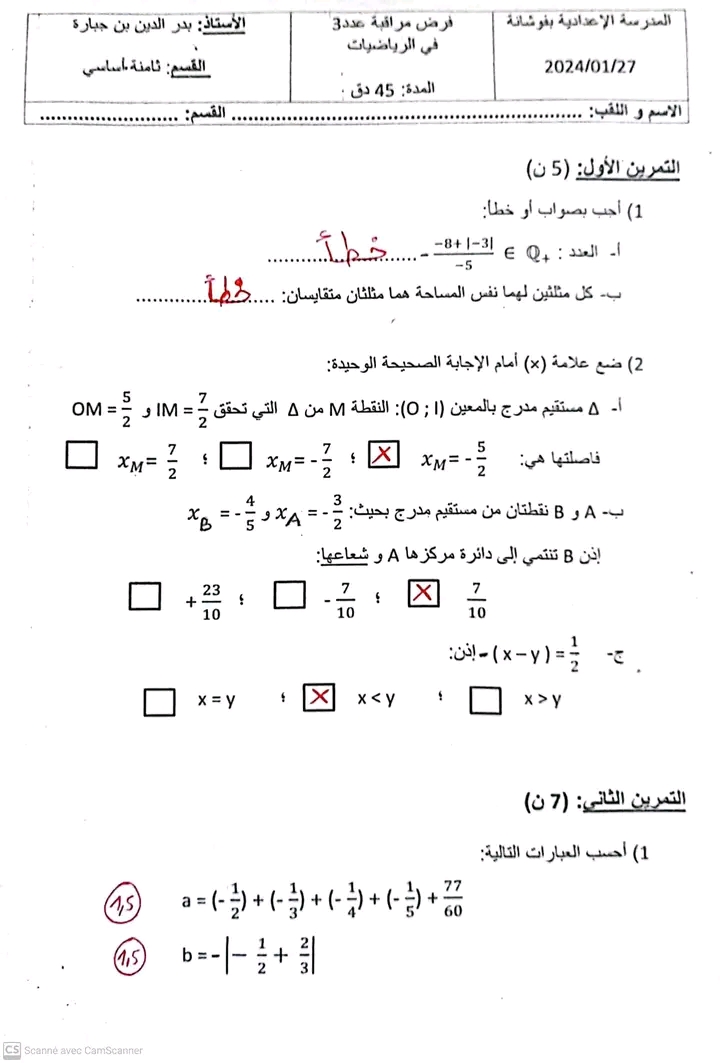 المدرسة الإعدادية بفوشانة
2024/01/27
فرض مراقبة عدد3
في الرياضيات
المدة: 45 دق
الأستاذ: بدر الدين بن جبارة
القسم: ثامنة أساسي
الاسم و اللقب: ........................................ القسم: ........................
التمرين الأول: (5 ن)
1) أجب بصواب أو خطأ:
أ- العدد : -\frac{-8+|-3|}{-5} ∈ ℚ₊ ............ خطأ ............
ب- كل مثلثين لهما نفس المساحة هما مثلثان متقايسان: ............ خطأ ............
2) ضع علامة (x) أمام الإجابة الصحيحة الوحيدة:
أ- Δ مستقيم مدرج بالمعين (O ; I): النقطة M من Δ التي تحقق IM = 7/2 و OM = 5/2
فاصلتها هي: x_M = - 5/2 [X] ؛ x_M = - 7/2 [ ] ؛ x_M = 7/2 [ ]
ب- A و B نقطتان من مستقيم مدرج بحيث: x_A = - 3/2 و x_B = - 4/5
إذن B تنتمي إلى دائرة مركزها A و شعاعها:
7/10 [X] ؛ - 7/10 [ ] ؛ + 23/10 [ ]
ج- -(x – y) = 1/2 إذن:
x > y [ ] ؛ x < y [X] ؛ x = y [ ]
التمرين الثاني: (7 ن)
1) أحسب العبارات التالية:
1,5 a = (- 1/2) + (- 1/3) + (- 1/4) + (- 1/5) + 77/60
1,5 b = - |– 1/2 + 2/3|
CS Scanné avec CamScanner